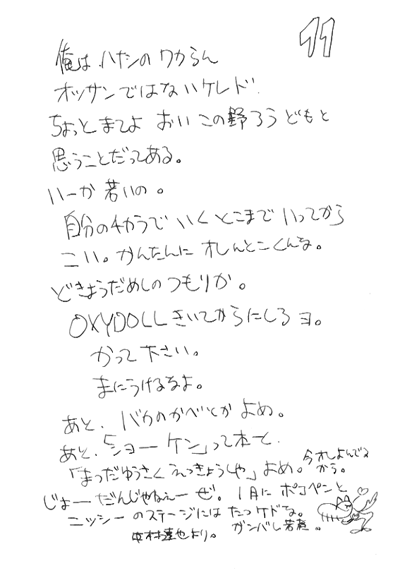 11
俺は ハナシの ワカらん
オッサンではないケレド
ちょっとまてよ おい この野ろうどもと
思うことだってある。
いーか 若いの。
自分の4からで いくとこまで いってから
こい。かんたんに オレんとこくんな。
どきょうだめしのつもりか。
OXYDOLL きいてからにしろヨ。
かって下さい。
まにうけるなよ。
あと、バカのかべとか よめ。
あと、「ショーケン」って本と、
「まつだゆうさく きょうしゃ」よめ。今オレよんでる
から。
じょーだんじゃねぇーぜ。1月に ポコペンと
ニッシーのステージには たつケドな。
中村達也より。ガンバレ若造。